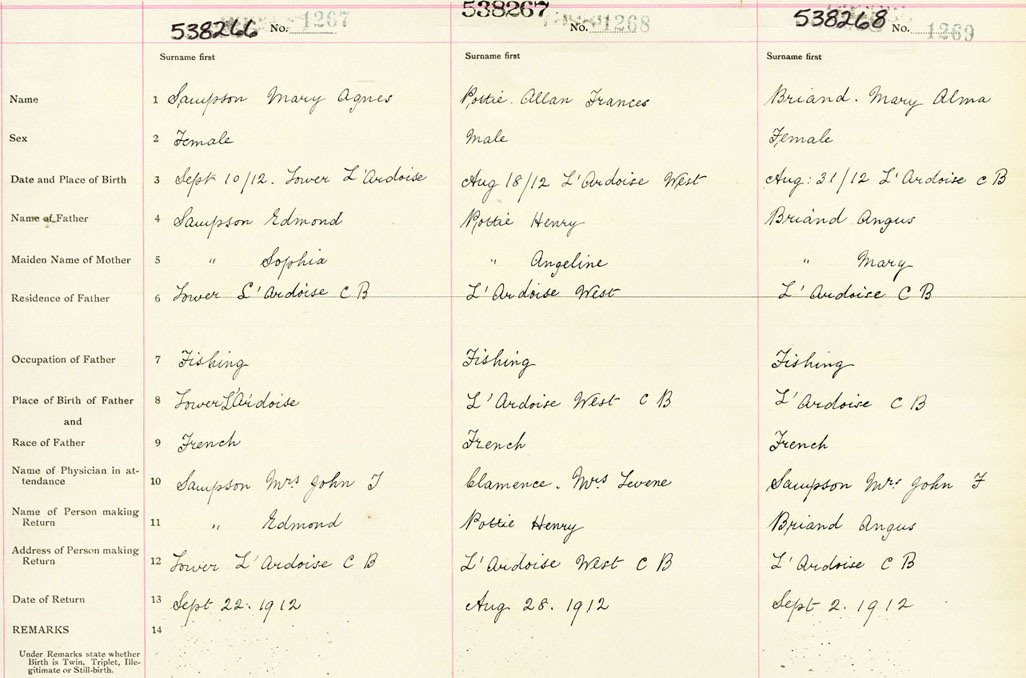 538266 No. 1267 538267 No. 1268 538268 No. 1269
Surname first Surname first Surname first
Name 1 Sampson Mary Agnes Pottie. Allan Frances Briand. Mary Alma
Sex 2 Female Male Female
Date and Place of Birth 3 Sept 10/12. Lower L'Ardoise Aug 18/12 L'Ardoise West Aug: 31/12 L'Ardoise C B
Name of Father 4 Sampson Edmond Pottie Henry Briand Angus
Maiden Name of Mother 5 " Sophia " Angeline " Mary
Residence of Father 6 Lower L'Ardoise C B L'Ardoise West L'Ardoise C B
Occupation of Father 7 Fishing Fishing Fishing
Place of Birth of Father 8 Lower L'Ardoise L'Ardoise West C B L'Ardoise C B
and
Race of Father 9 French French French
Name of Physician in at-
tendance 10 Sampson Mrs John F Clamence. Mrs Levene Sampson Mrs John F
Name of Person making
Return 11 " Edmond Pottie Henry Briand Angus
Address of Person making
Return 12 Lower L'Ardoise C B L'Ardoise West C B L'Ardoise C B
Date of Return 13 Sept 22. 1912 Aug 28. 1912 Sept 2. 1912
REMARKS 14
Under Remarks state whether
Birth is Twin, Triplet, Ille-
gitimate or Still-birth.